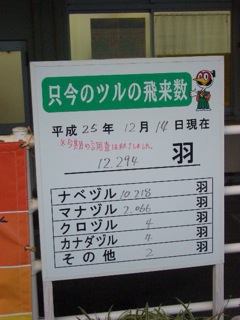 只今のツルの飛来数
平成25年12月14日現在
※5回目の調査は終了しました。
12.294 羽
ナベヅル 10.218 羽
マナヅル 2.066 羽
クロヅル 4 羽
カナダヅル 4 羽
その他 2 羽